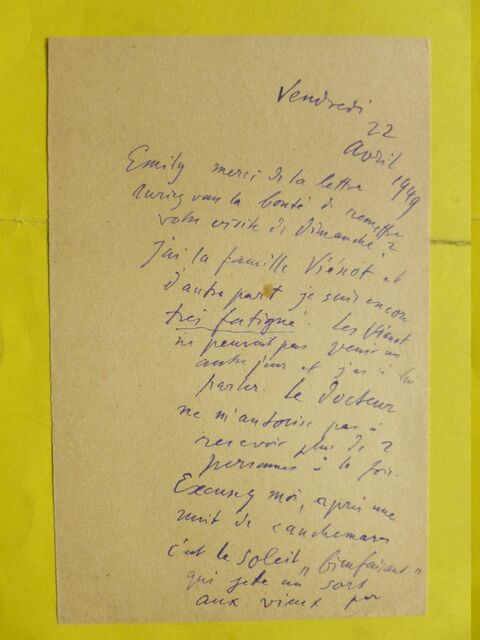 Vendredi
22
Avril 1949
Emily merci de la lettre
Auriez vous la bonté de remettre
votre visite de Dimanche?
J'ai la famille Viénot et
d'autre part je suis encore
très fatigué. Les Viénot
ne peuvent pas venir un
autre jour et j'ai à lui
parler. Le Docteur
ne m'autorise pas à
recevoir plus de 2
personnes à la fois.
Excusez moi, après une
nuit de cauchemars
c'est le soleil „bienfaisant"
qui jete un sort
aux vieux par